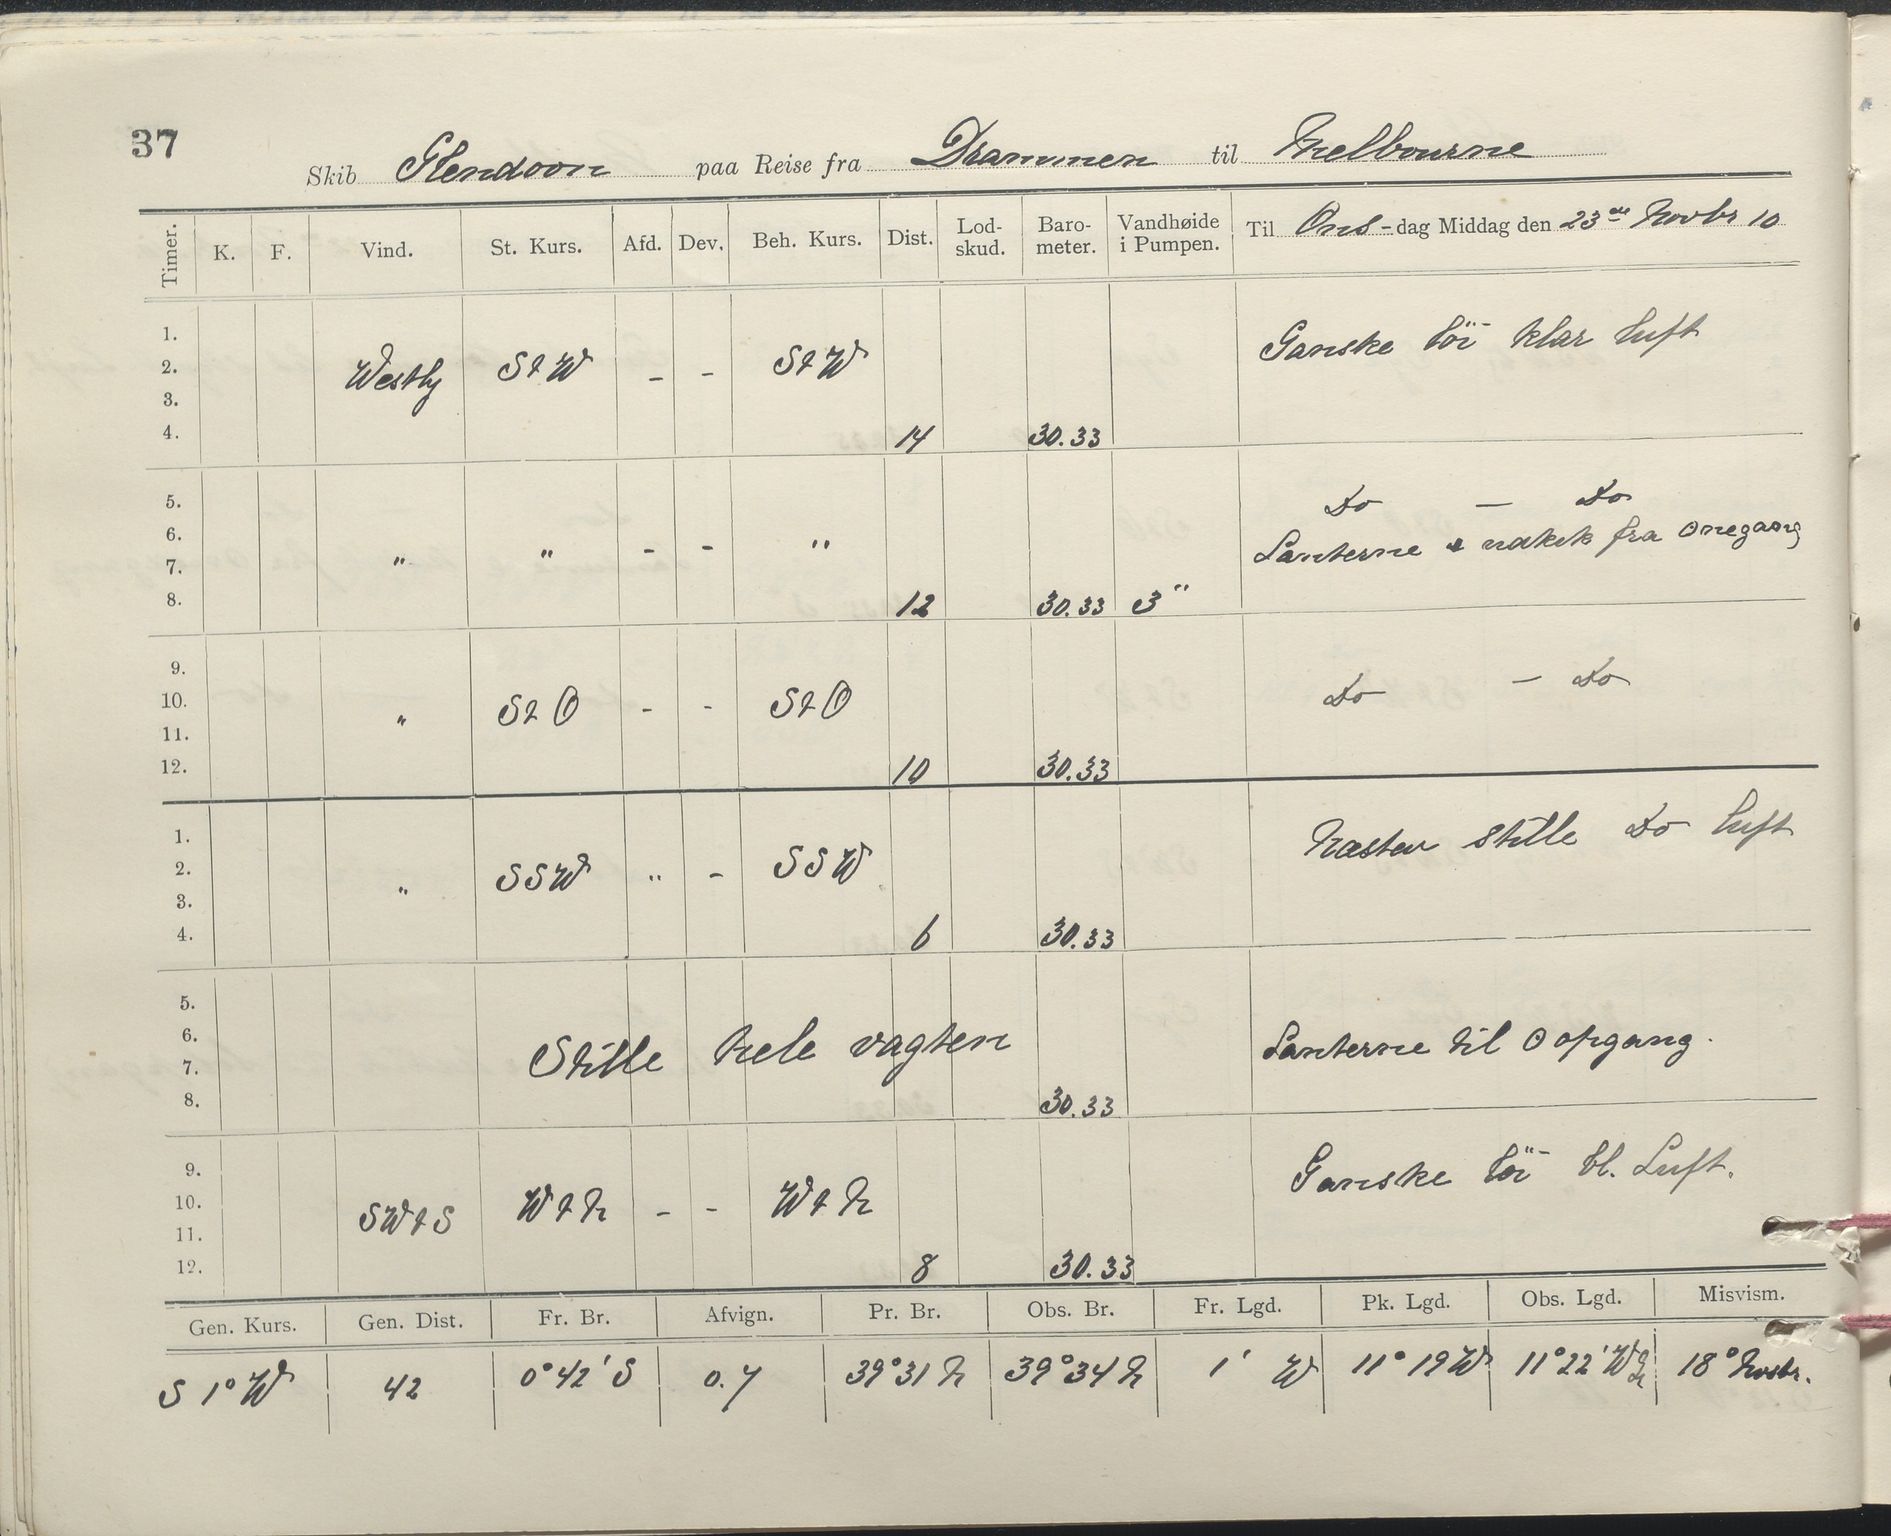 37
Skib Glendoon paa Reise fra Drammen til Melbourne
Timer. K. F. Vind. St. Kurs. Afd. Dev. Beh. Kurs. Dist. Lod-skud. Baro-meter. Vandhøide i Pumpen. Til Ons-dag Middag den 23de Novbr 10
1. Ganske löi klar luft
2. Westlg StW - - StW
3.
4. 14 30.33
5. Do — Do
6. " " - - " Lanterne & udkik fra Onegang
7.
8. 12 30.33 3"
9. Do — Do
10. " StO - - StO
11.
12. 10 30.33
1. Næsten stille Do luft
2. " SSW " - SSW
3.
4. 6 30.33
5.
6. Stille hele vagten Lanterne til O opgang.
7.
8. 30.33
9. Ganske löi bl. Luft.
10. SWtS WtN - - WtN
11.
12. 8 30.33
Gen. Kurs. Gen. Dist. Fr. Br. Afvign. Pr. Br. Obs. Br. Fr. Lgd. Pk. Lgd. Obs. Lgd. Misvism.
S 1° W 42 0°42' S 0.7 39°31 N 39°34 N 1' W 11° 19 W 11°22' W 18° Nvstr.